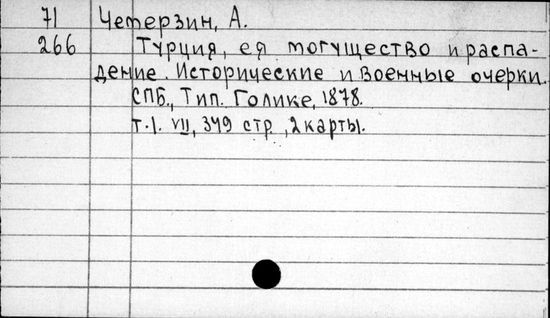 71 Четерзин, А.
266 Турция, ея могущество и распа-
дение. Исторические и военные очерки.
СПБ., Тип. Голике, 1878.
т.1. VII, 349 стр., 2 карты.